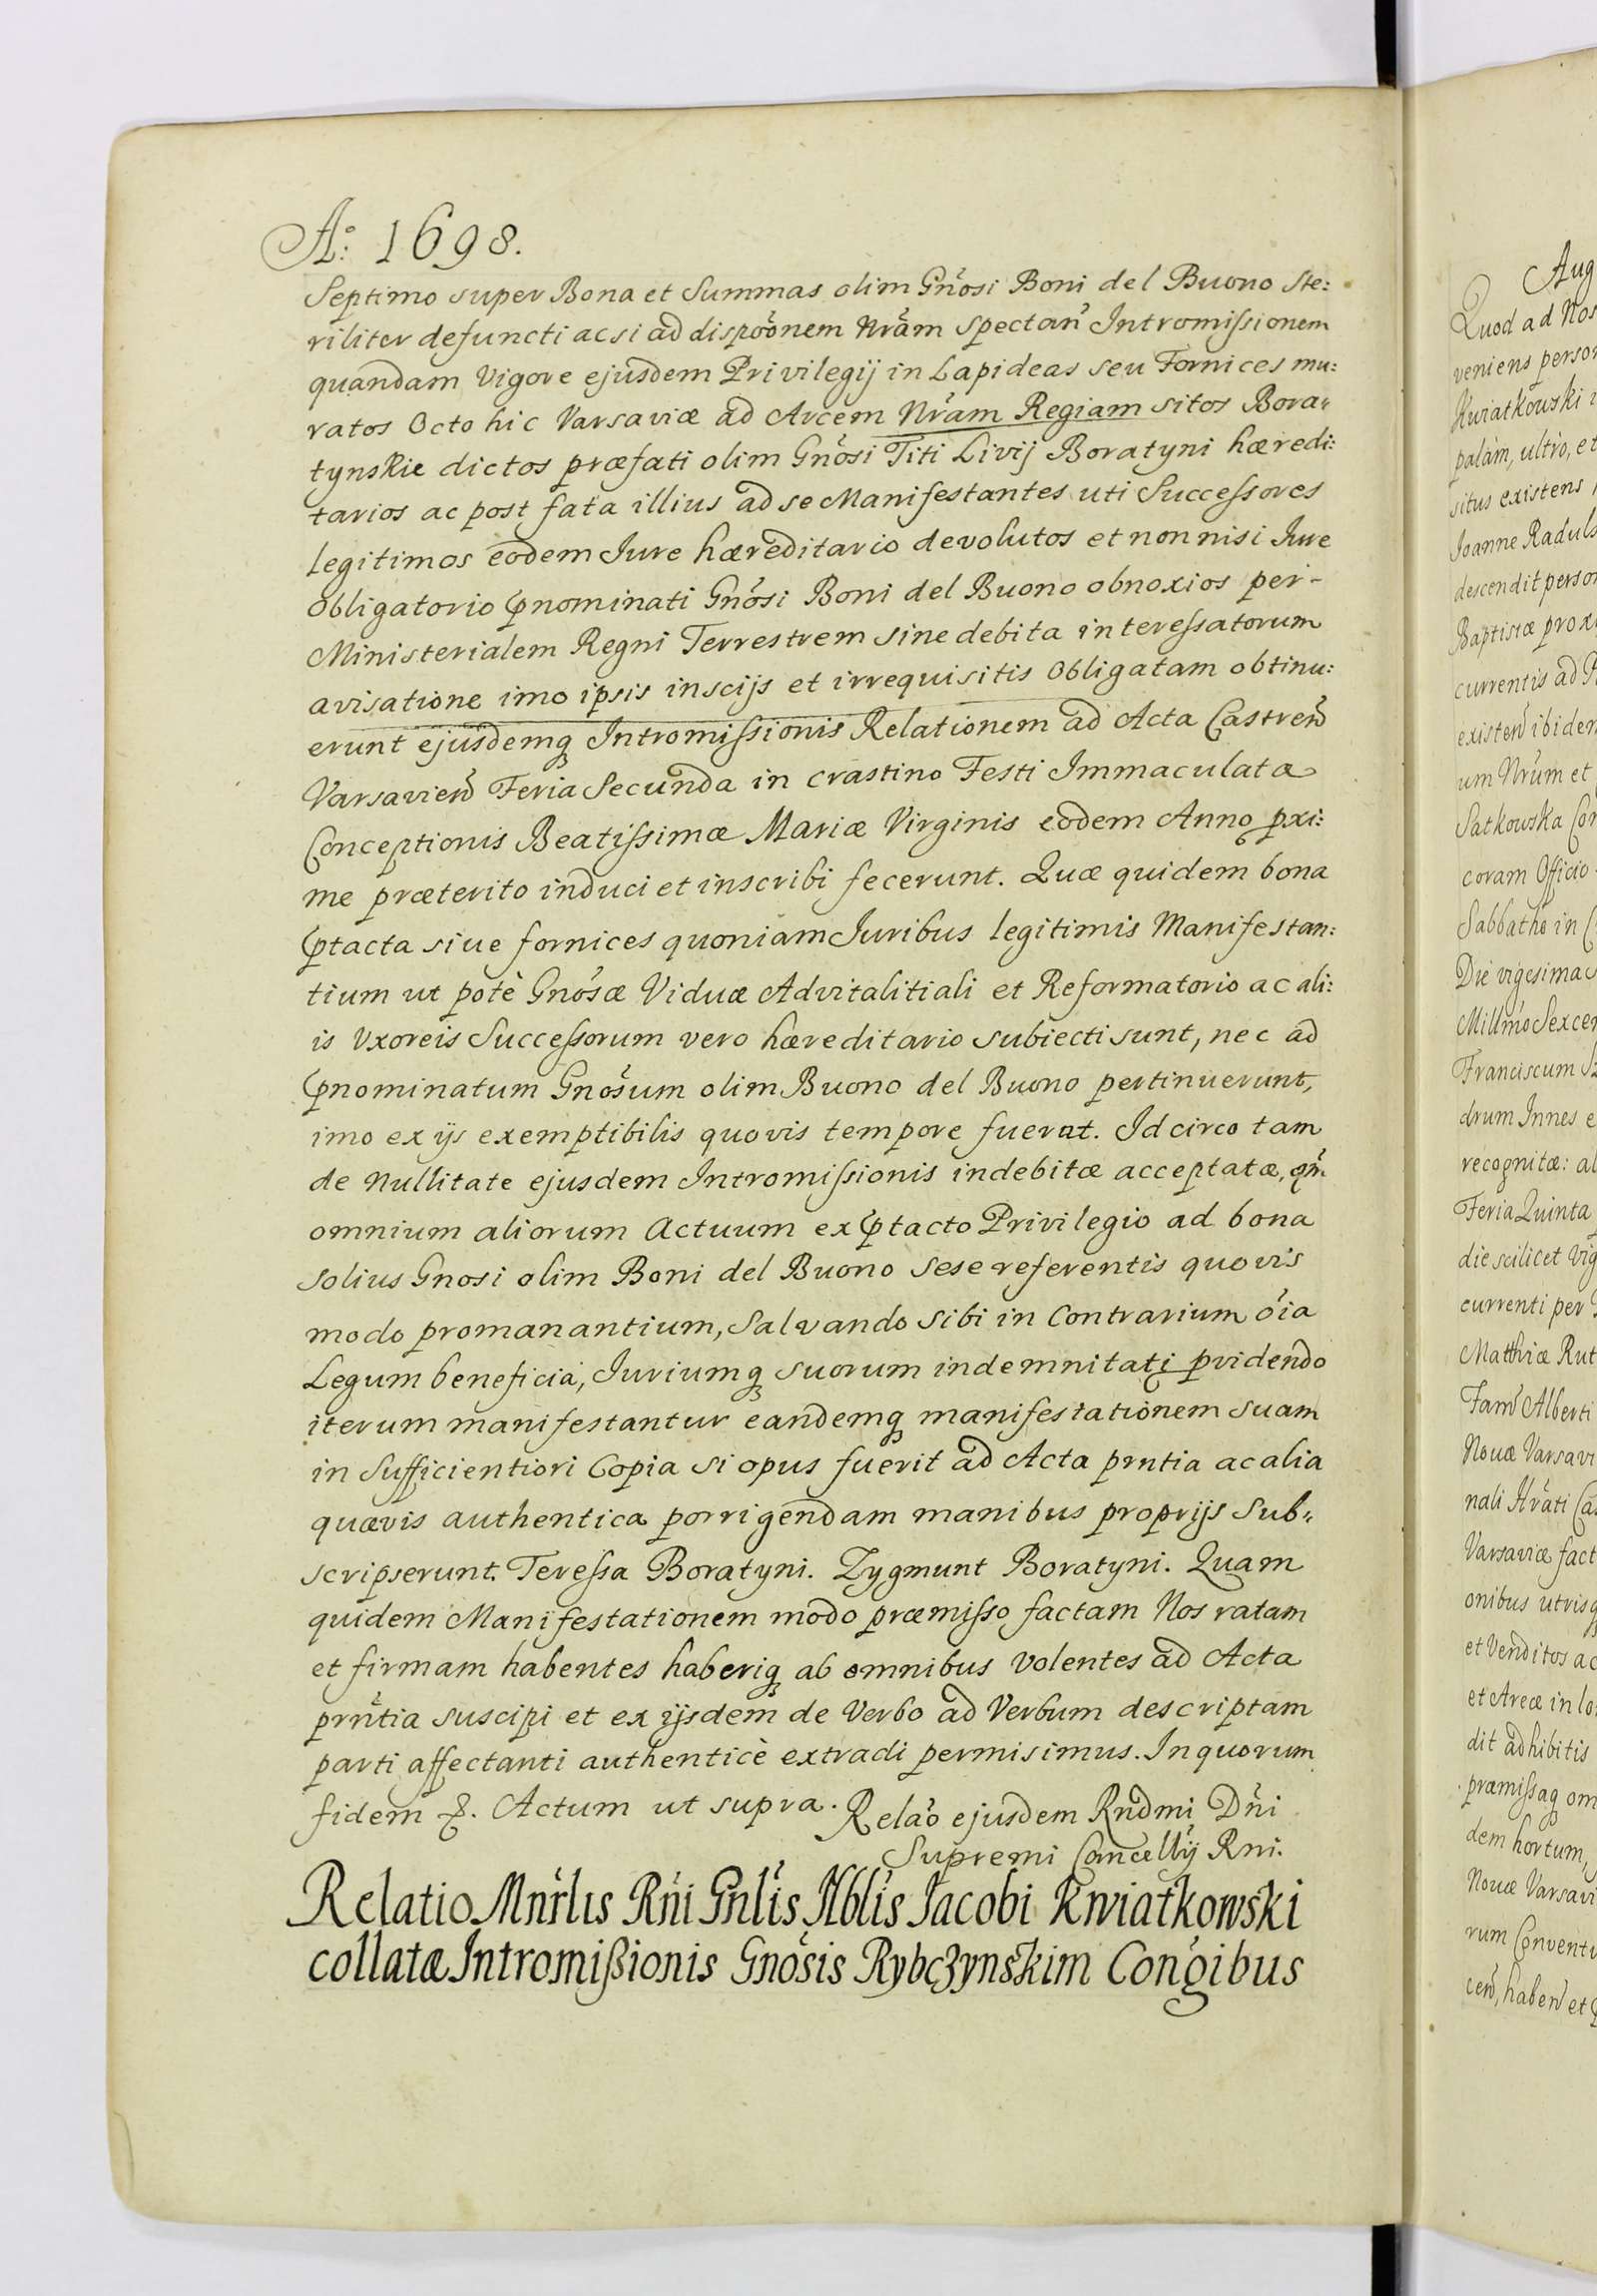 A:º 1698.
Septimo super Bona et Summas olim Gnosi Boni del Buono ste:
riliter defuncti ac si ad dispoōnem Nrām spectan Intromissionem
quandam Vigore ejusdem Privilegij in Lapideas seu Fornices mu:
ratos Octo hic Varsaviæ ad Arcem Nrām Regiam sitos Bora:
tynskie dictos præfati olim Gnōsi Titi Livij Boratyni hæredi:
tarios ac post fata illius ad se Manifestantes uti Successores
legitimos eodem Jure hæreditario devolutos et non nisi Jure
Obligatorio pnominati Gnōsi Boni del Buono obnoxios per-
Ministerialem Regni Terrestrem sine debita interessatorum
avisatione imo ipsis inscijs et irrequisitis Obligatam obtinu:
erunt ejusdemq Intromissionis Relationem ad Acta Castren
Varsavien Feria Secunda in crastino Festi Immaculata
Conceptionis Beatissimæ Mariæ Virginis eodem Anno pxi:
me præterito induci et inscribi fecerunt. Quæ quidem bona
ptacta siue fornices quoniam Juribus legitimis Manifestan:
tium ut potè Gnōsæ Viduæ Advitalitiali et Reformatorio ac ali:
is Vxoreis Successorum vero hæreditario subiecti sunt, nec ad
pnominatum Gnōsum olim Buono del Buono pertinuerunt,
imo ex ijs exemptibilis quovis tempore fuerat. Idcirco tam
de Nullitate ejusdem Intromissionis indebitæ acceptatæ, qm
omnium aliorum Actuum ex ptacto Privilegio ad bona
solius Gnosi olim Boni del Buono sese referentis quovis
modo promanantium, Salvando sibi in Contrarium oīa
Legum beneficia, Juriumq suorum indemnitati pvidendo
iterum manifestantur eandemq manifestationem suam
in Sufficientiori Copia si opus fuerit ad Acta prntia ac alia
quævis authentica porrigendam manibus proprijs Sub:
scripserunt. Teressa Boratyni. Zygmunt Boratyni. Quam
quidem Manifestationem modo præmisso factam Nos ratam
et firmam habentes haberiq ab omnibus Volentes ad Acta
prntia suscipi et ex ijsdem de Verbo ad Verbum descriptam
parti affectanti authenticè extradi permisimus. In quorum
fidem &. Actum ut supra. Relaō ejusdem Rndmi Dni
Supremi Cancellij Rni.
Relatio Mnrlis Rni Gnlis Nblis Jacobi Kwiatkowski
collatæ Intromißionis Gnōsis Rybczynskim Congibus
Aug
Quod ad Nos
veniens person
Kwiatkowski
palàm, ultrò, et
situs existens
Joanne Raduls
descendit person
Baptistæ prox
currentis ad
existen ibidem
um Nrūm et
Satkowska Con
coram Officio
Sabbatho in
Die vigesima
Millmo Sexcen
Franciscum
drum Innes e
recognitæ: al
Feria Quinta
die scilicet Vig
currenti per
Matthiæ Rut
Fam Alberti
Nouæ Varsavi
nali Hrati Ca
Varsaviæ fact
onibus utrisq
et Venditos ac
et Areæ in lo
dit adhibitis
præmissaq om
dem hortum,
Nouæ Varsavi
rum Conventu
cen, haben et